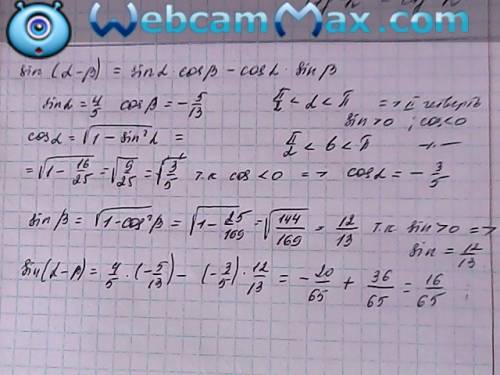 WebcamMax.com
sin(α-β) = sinα · cosβ - cosα · sinβ
sinα = 4/5 cosβ = -5/13 π/2 < α < π => II четверть
sin>0 ; cos<0
cosα = √(1 - sin²α) = π/2 < b < π -"-
= √(1 - 16/25) = √(9/25) = √(3/5) т.к cos<0 => cosα = - 3/5
sin β = √(1-cos²β) = √(1 - 25/169) = √(144/169) = 12/13 т.к sin>0 =>
sin = 12/13
sin(α-β) = 4/5 · (-5/13) - (-3/5) · 12/13 = - 20/65 + 36/65 = 16/65 ;